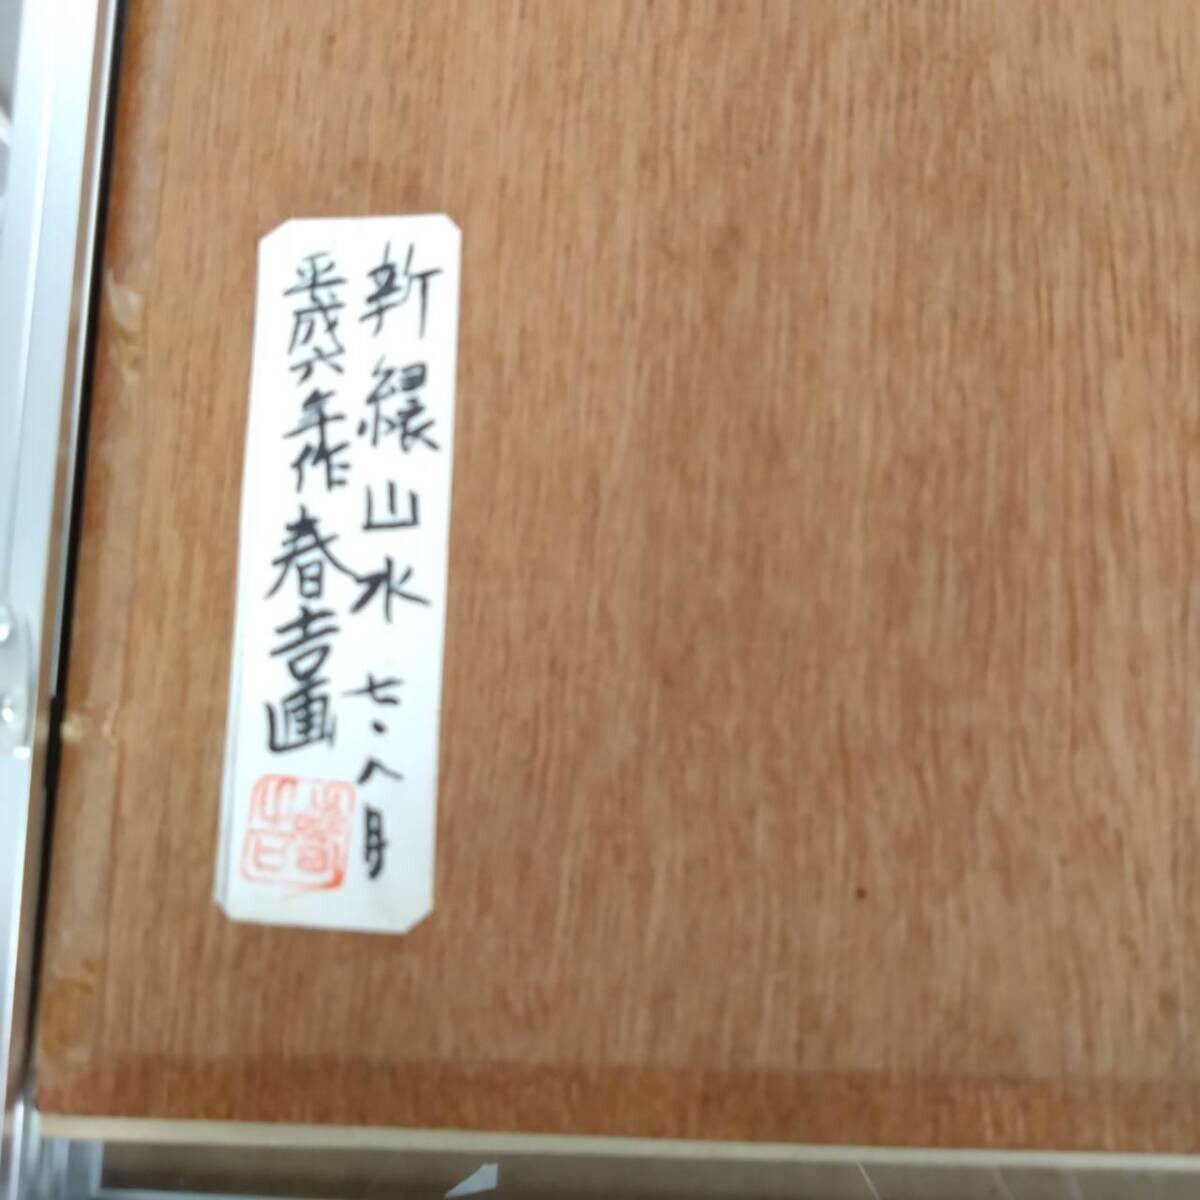 新緑山水 七・八月
平成六年作 春吉画